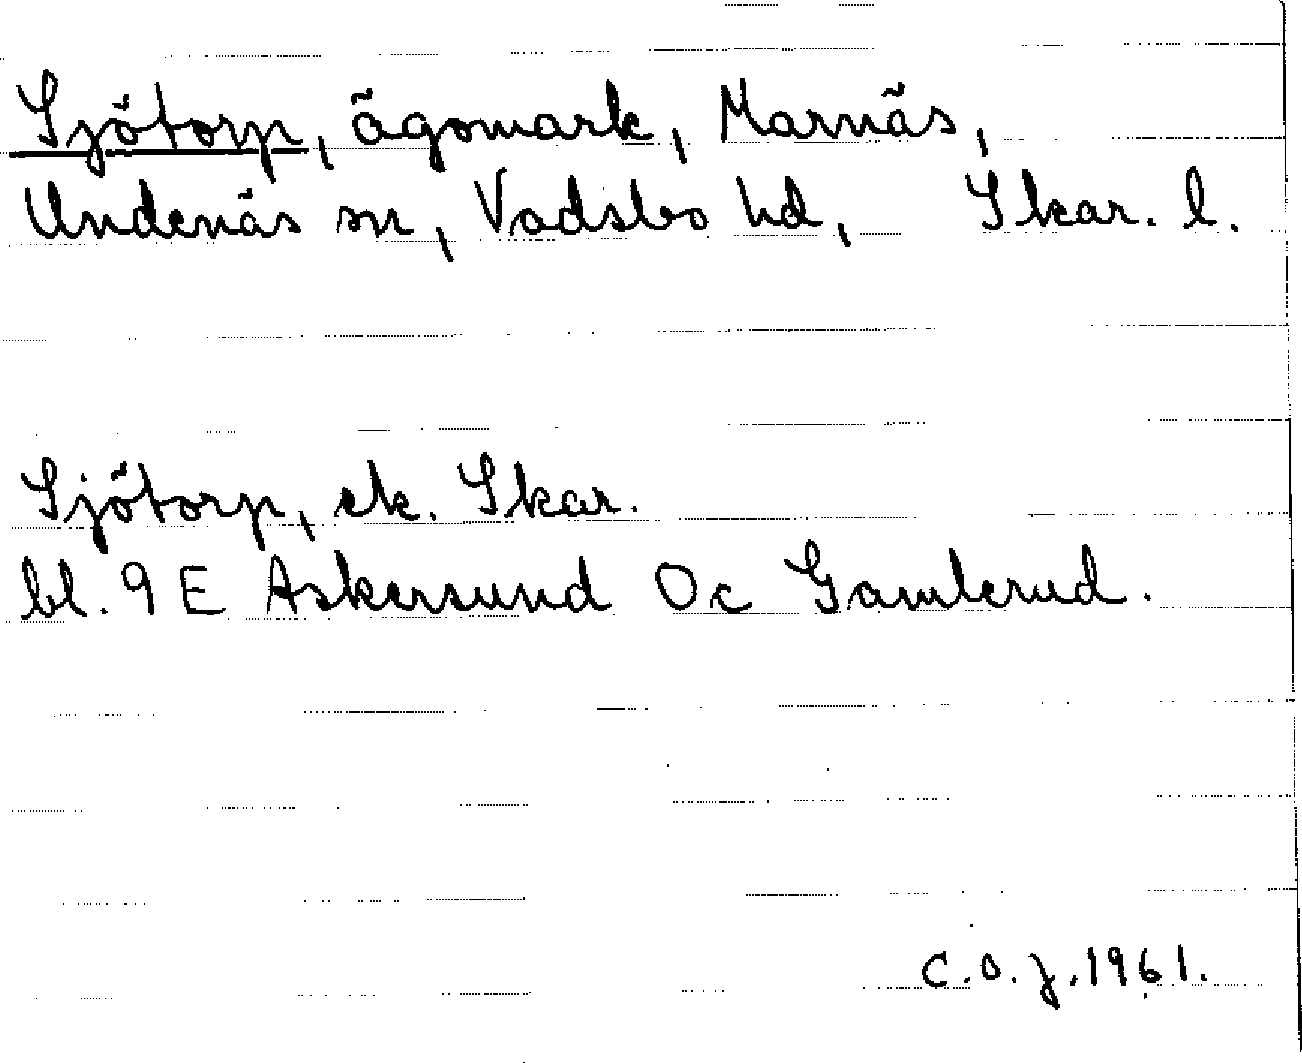 Sjötorp, ägomark, Marnäs,
Undenäs sn, Vadsbo hd, Skar. l.
Sjötorp, ek. Skar.
bl. 9 E Askersund Oc Gamlerud.
C.O.J. 1961.